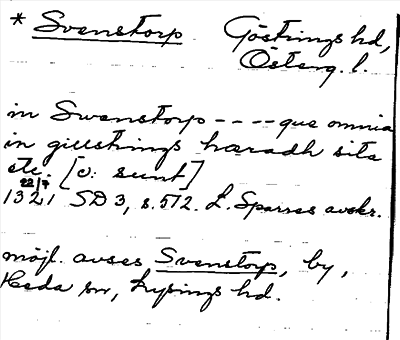 * Svenstorp Göstrings hd,
Österg. l.
in Swenstorp ---- que omnia
in gillstrings hæradh sita
etc. [ɔ: sunt]
22/7
1321 SD 3, s. 512. L. Sparres avskr.
möjl. avses Svenstorp, by,
Heda sn, Lysings hd.